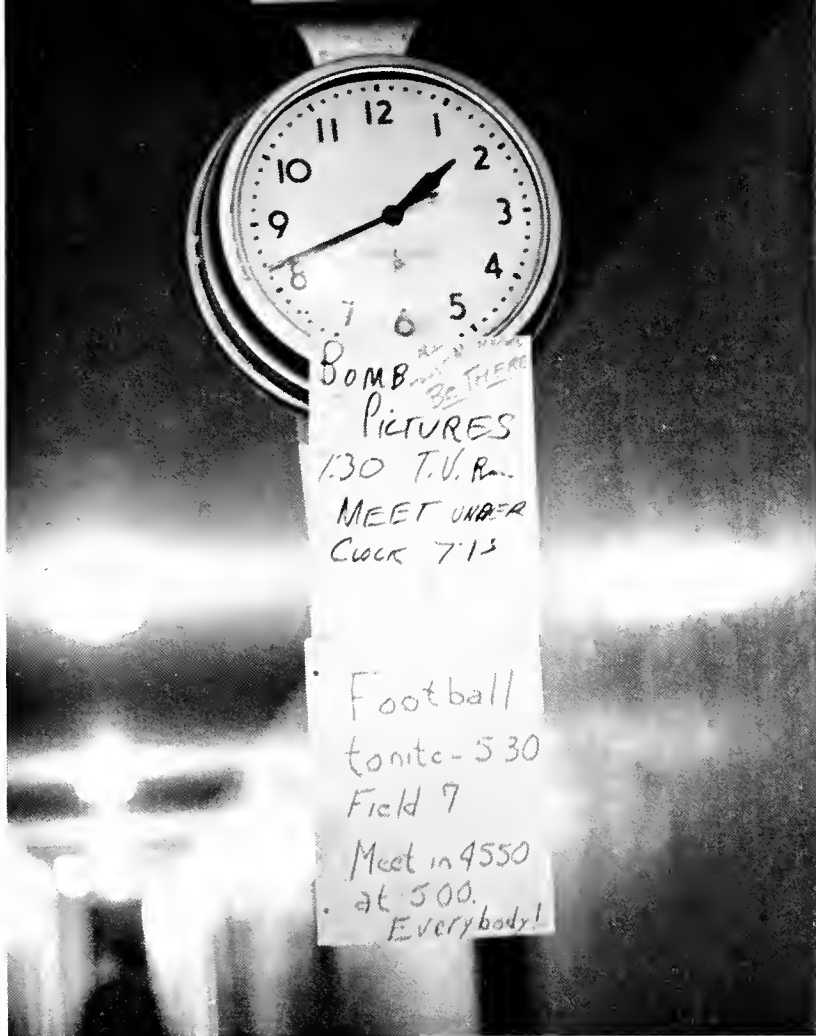 12
11 1
10 2
9 3
8 4
7 5
6
BOMB
BE THERE
PICTURES
1:30 T.V. Rm.
MEET UNDER
CLOCK 7:15
Football
tonite - 5 30
Field 7
Meet in 4550
at 5 00.
Everybody!